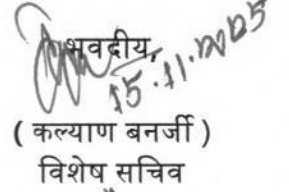 भवदीय,
15.11.2025
( कल्याण बनर्जी )
विशेष सचिव